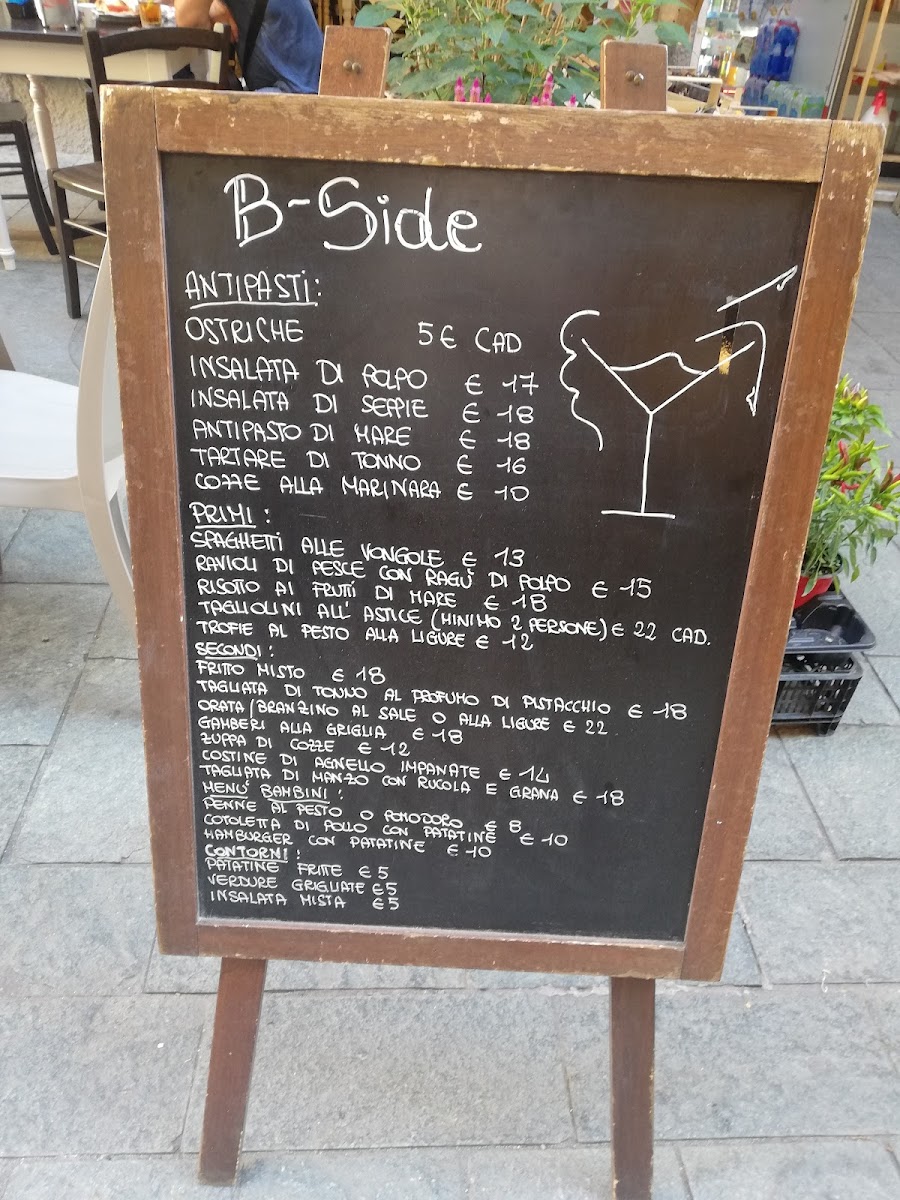 B-Side
ANTIPASTI:
OSTRICHE 5€ CAD
INSALATA DI POLPO € 17
INSALATA DI SEPPIE € 18
ANTIPASTO DI MARE € 18
TARTARE DI TONNO € 16
COZZE ALLA MARINARA € 10
PRIMI:
SPAGHETTI ALLE VONGOLE € 13
RAVIOLI DI PESCE CON RAGÙ DI POLPO € 15
RISOTTO AI FRUTTI DI MARE € 18
TAGLIOLINI ALL' ASTICE (MINIMO 2 PERSONE) € 22 CAD.
TROFIE AL PESTO ALLA LIGURE € 12
SECONDI:
FRITTO MISTO € 18
TAGLIATA DI TONNO AL PROFUMO DI PISTACCHIO € 18
ORATA/BRANZINO AL SALE O ALLA LIGURE € 22
GAMBERI ALLA GRIGLIA € 18
ZUPPA DI COZZE € 12
COSTINE DI AGNELLO IMPANATE € 14
TAGLIATA DI MANZO CON RUCOLA E GRANA € 18
MENU' BAMBINI:
PENNE AL PESTO O POMODORO € 8
COTOLETTA DI POLLO CON PATATINE € 10
HAMBURGER CON PATATINE € 10
CONTORNI:
PATATINE FRITTE € 5
VERDURE GRIGLIATE € 5
INSALATA MISTA € 5